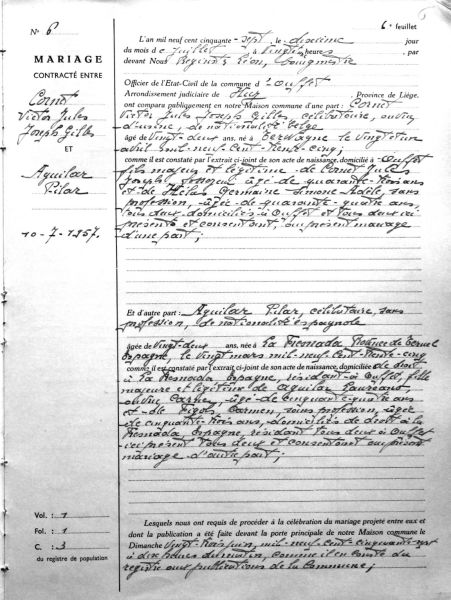 6e feuillet
N° 6
MARIAGE
CONTRACTÉ ENTRE
Cornet
Victor Jules
Joseph Gilles
ET
Aguilar
Pilar
10-7-1957.
L'an mil neuf cent cinquante-sept, le dixième jour
du mois de juillet à vingt heures, par
devant Nous Léon, bourgmestre
Officier de l'Etat-Civil de la commune d'Ouffet
Arrondissement judiciaire de Huy, Province de Liège.
ont comparu publiquement en notre Maison commune d'une part : Cornet
Victor Jules Joseph Gilles, célibataire, ouvrier
d'usine, de nationalité belge
âgé de vingt-deux ans, né à Terwagne le vingt et un
avril mil-neuf-cent-trente-cinq;
comme il est constaté par l'extrait ci-joint de son acte de naissance, domicilié à Ouffet
fils majeur et légitime de Cornet Jules
Joseph, âgé de quarante-trois ans
et de Germaine Simone Adèle, sans
profession, âgée de quarante-quatre ans,
tous deux domiciliés à Ouffet et tous deux ici
présents et consentant au présent mariage
d'une part;
Et d'autre part : Aguilar Pilar, célibataire, sans
profession, de nationalité espagnole
âgée de vingt-deux ans, née à La Fresnada Province de Teruel
Espagne, le vingt mars mil-neuf-cent-trente-cinq
comme il est constaté par l'extrait ci-joint de son acte de naissance, domiciliée de droit
à La Fresnada Espagne, résidant à Ouffet, fille
majeure et légitime de Aguilar Laureano
ouvrier, âgé de cinquante-quatre ans
et de Carmen, sans profession, âgée
de cinquante-trois ans, domiciliés de droit à La
Fresnada, Espagne, résidant tous deux à Ouffet
ici présents tous deux et consentant au présent
mariage d'autre part;
Vol. : 1
Fol. : 1
C. : 3
du registre de population
Lesquels nous ont requis de procéder à la célébration du mariage projeté entre eux et
dont la publication a été faite devant la porte principale de notre Maison commune le
Dimanche vingt-trois juin, mil-neuf-cent-cinquante-sept
à dix heures du matin, comme il en conste du
registre aux publications de la Commune;